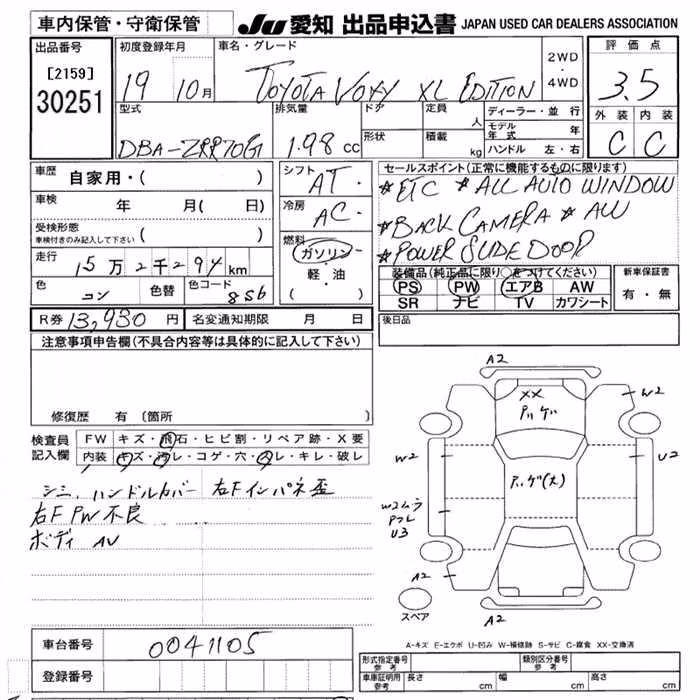 車内保管・守衛保管 JU 愛知 出品申込書 JAPAN USED CAR DEALERS ASSOCIATION
出品番号 初度登録年月 車名・グレード 評価点
[2159] 2WD
30251 19 10月 TOYOTA VOXY XL EDITION 4WD 3.5
型式 排気量 ドア 定員 人 ディーラー・並行 外装 内装
モデル年式 年
DBA-ZRR70G 1.98 cc 形状 積載 kg ハンドル 左・右 C C
車歴 自家用・( ) シフト AT セールスポイント(正常に機能するものに限ります)
車検 年 月( 日) 冷房 AC ★ETC ★ALL AUTO WINDOW
受検形態 ★BACK CAMERA ★AW
車検付きのみ記入して下さい ( ) 燃料 ★POWER SLIDE DOOR
走行 15万2千294km ガソリン
軽・油
( )
装備品(純正品に限り○をつけてください) 新車保証書
色 コン 色替 色コード 8S6 PS PW エアB AW 有・無
SR ナビ TV カワシート
R券 13,930 円 名変通知期限 月 日 後日品
注意事項申告欄(不具合内容等は具体的に記入して下さい)
修復歴 有 (箇所 )
検査員 FW キズ・飛石・ヒビ割・リペア跡・X要
記入欄 内装 キズ・汚レ・コゲ・穴・スレ・キレ・破レ
シミ、ハンドルカバー 右Fインパネ歪
右F PW不良
ボディ AU
A2
XX
W2
W2
U2
W2ムラ
U3
A2
スペア
A2
A-キズ E-エクボ U-凹み W-補修跡 S-サビ C-腐食 XX-交換済
車台番号 0041105
登録番号
形式指定番号 参考 類別区分番号 参考
車庫証明用 参考 長さ cm 幅 cm 高さ cm